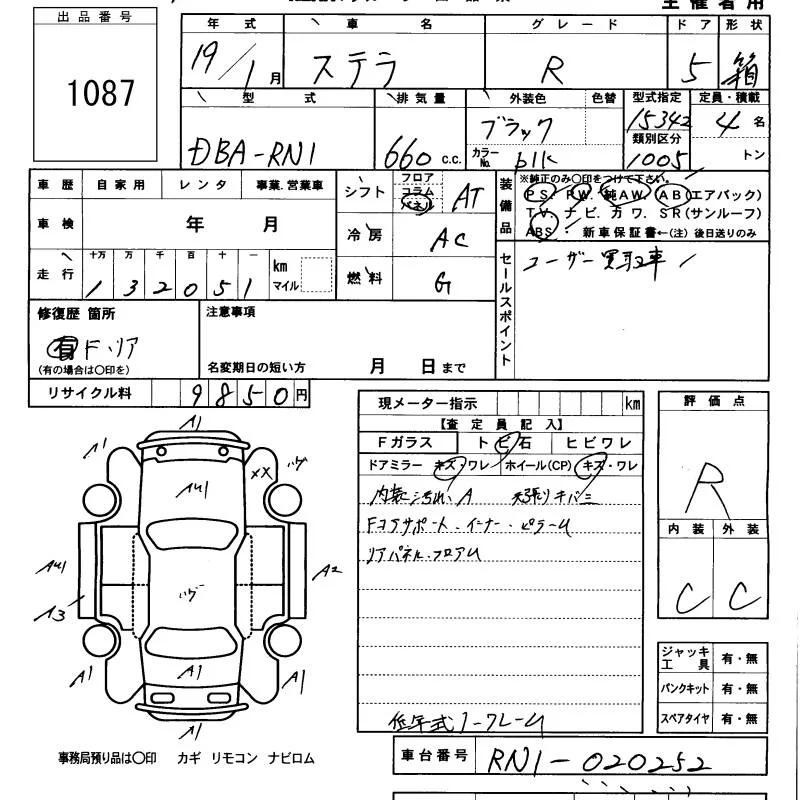 主催者用
出品番号
1087
年式 車名 グレード ドア 形状
19/1月 ステラ R 5 箱
型式 排気量 外装色 色替 型式指定 定員・積載
DBA-RN1 660 c.c. ブラック 15342 4名
カラーNo. blk 類別区分 1005 トン
車歴 自家用 レンタ 事業.営業車
シフト フロア コラム パネル AT
装備品 ※純正のみ〇印をつけて下さい。
PS. PW. 純AW. AB(エアバック)
TV. ナビ. カワ. SR(サンルーフ)
ABS. 新車保証書←(注) 後日送りのみ
車検 年 月
冷房 AC
走行 十万 万 千 百 十 一 km マイル
132051
燃料 G
セールスポイント ユーザー買取車
修復歴 箇所 注意事項
有 F.リア
(有の場合は〇印を) 名変期日の短い方 月 日まで
リサイクル料 9850円
現メーター指示 km
【査定員記入】
Fガラス トビ石 ヒビワレ
ドアミラー キズ・ワレ ホイール(CP) キズ・ワレ
内装汚れ A 天張りキバミ
Fコアサポート.インナー.ピラーM
リアパネル.フロアM
低年式 フレーム
評価点
R
内装 外装
C C
A1
A1 XX ハゲ
AU1
ハゲ
AU1 A2
A3
A1 A1 A1
A1
ジャッキ工具 有・無
パンクキット 有・無
スペアタイヤ 有・無
事務局預り品は〇印 カギ リモコン ナビロム
車台番号 RN1-020252